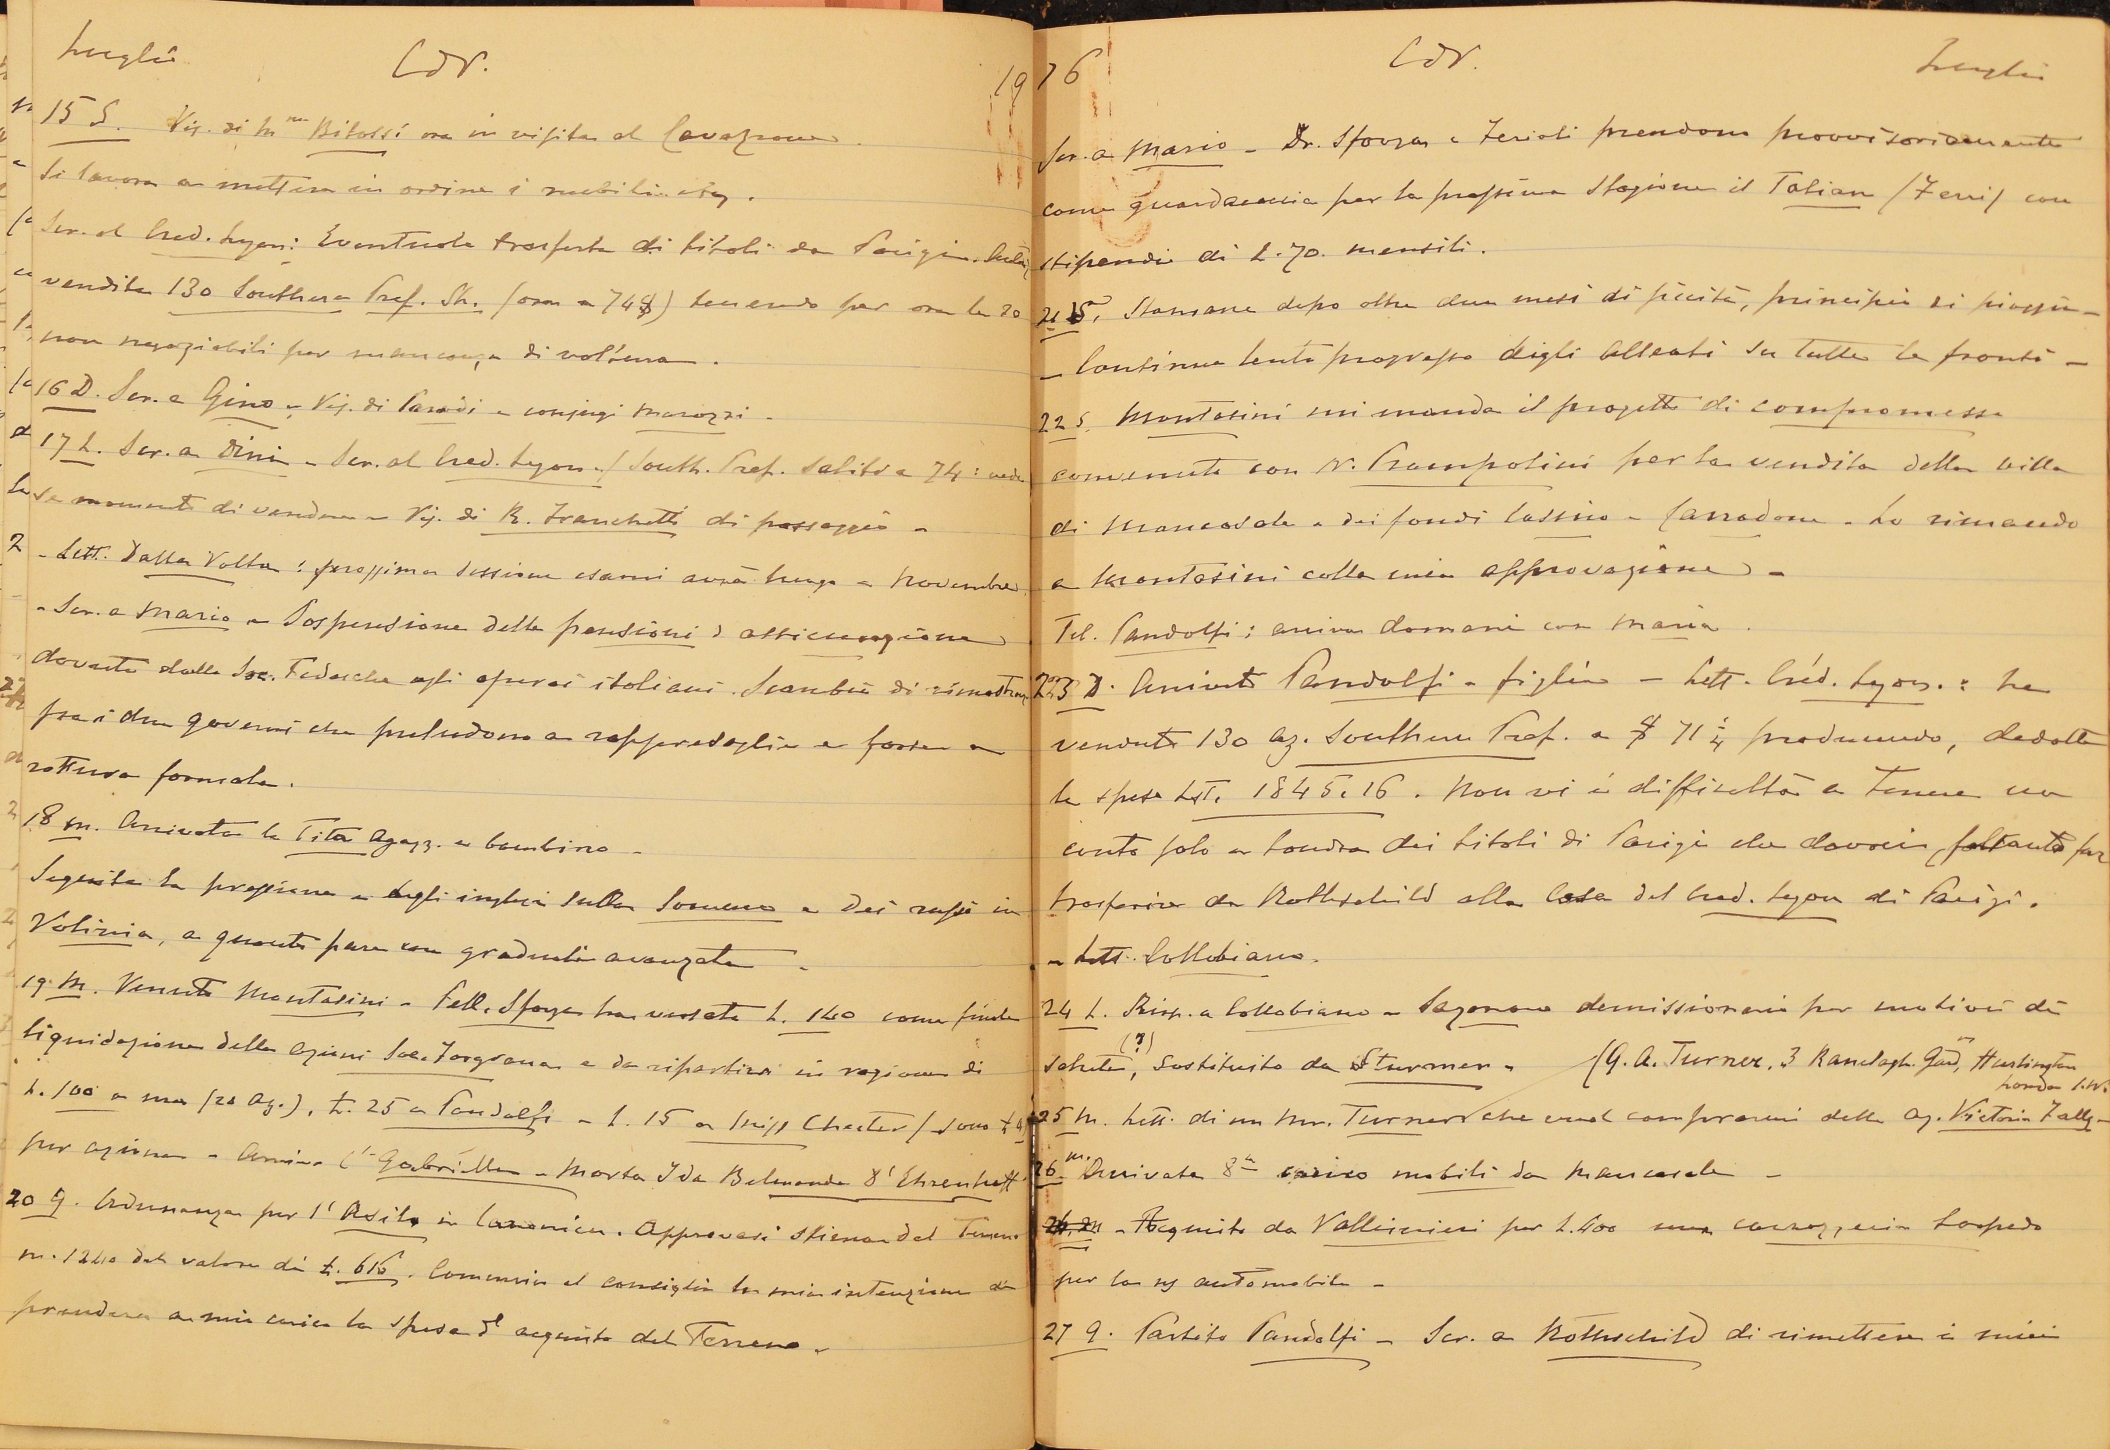 Luglio CdV. 19
15 S. Vis. di Mme Bitossi ora in visita al Cavazzone.
Si lavora a mettere in ordine i mobili etc.
Scr. al Cred. Lyon: Eventuale trasferta di titoli da Parigi.
vendita 130 Southern Pref. Sh. (ora a 74$) tenendo per ora le 20
non negoziabili per mancanza di voltura.
16 D. Scr. a Gino - Vis. di Parodi e conjugi Marozzi -
17 L. Scr. a Dini - Scr. al Cred. Lyon - (South. Pref. salite a 74: veda
se momento di vendere - Vis. di R. Franchetti di passaggio -
- Lett. Dalla Volta: prossima sessione esami avrà luogo a Novembre.
- Scr. a Mario - Sospensione delle pensioni d'assicurazione
dovute dalle Soc. Tedesche agli operai italiani. Scambio di rimostranze
fra i due governi che preludono a rappresaglie e forse a
rottura formale.
18 M. Arrivata la Tita Agazz. e bambino -
Seguita la pressione degli inglesi sulla Somme e dei russi in
Volinia, a quanto pare con graduale avanzata -
19 M. Venuto Montasini - Fell. Sforza ha versato L. 140 come finale
liquidazione delle azioni Soc. e da ripartirsi in ragione di
L. 100 a me (20 Az.), L. 25 a Pandolfi - L. 15 a Miss Chester (sono
per azione - Arriva C.sa Gabriella - Morta Ida Belmonde d'Ehrenhoff
20 G. Adunanza per l'Asilo in Canonica. Approvasi stima del Terreno
m. 1240 del valore di L. 616. Comunico al consiglio la mia intenzione di
prendere a mio carico la spesa d'acquisto del Terreno.
16 CdV. Luglio
Scr. a Mario - Dr. Sforza e Ferioli prendono provvisoriamente
come guardacaccia per la prossima stagione il Tosian (Ferri) con
stipendio di L. 70. mensili.
21 Stamane dopo oltre due mesi di siccità, principio di pioggia -
- Continua lento progresso degli Alleati su tutte le fronti -
22 S. Montasini mi manda il progetto di compromesso
convenuto con N. Prampolini per la vendita della villa
di Mancasale e dei fondi Cassino e Carradone. Lo rimando
a Montasini colla mia approvazione -
Tel. Pandolfi: arriva domani con Maria.
23 D. Arrivato Pandolfi e figlia - Lett. Créd. Lyon.: ha
venduto 130 az. Southern Pref. a $ 71 1/4 producendo, dedotte
le spese LST. 1845.16. Non vi è difficoltà a tenere un
conto solo a Londra dei titoli di Parigi che dovrei soltanto far
trasferire da Rothschild alla Casa del Cred. Lyon di Parigi.
- Lett. Collobiano.
24 L. Risp. a Collobiano - Sazonow demissionario per motivi di
salute (?), sostituito da Sturmer. (G. A. Turner. 3 Ranelagh. Gdns, Hurlingham
London S.W.
25 M. Lett. di un Mr. Turner che vuol comprarmi delle az. Victoria Falls -
26 M. Arrivata 8a carico mobili da Mancasale -
- Acquisto da Vallisnieri per L. 400 una carrozzeria torpedo
per la ns automobile -
27 G. Partito Pandolfi - Scr. a Rothschild di rimettere i miei